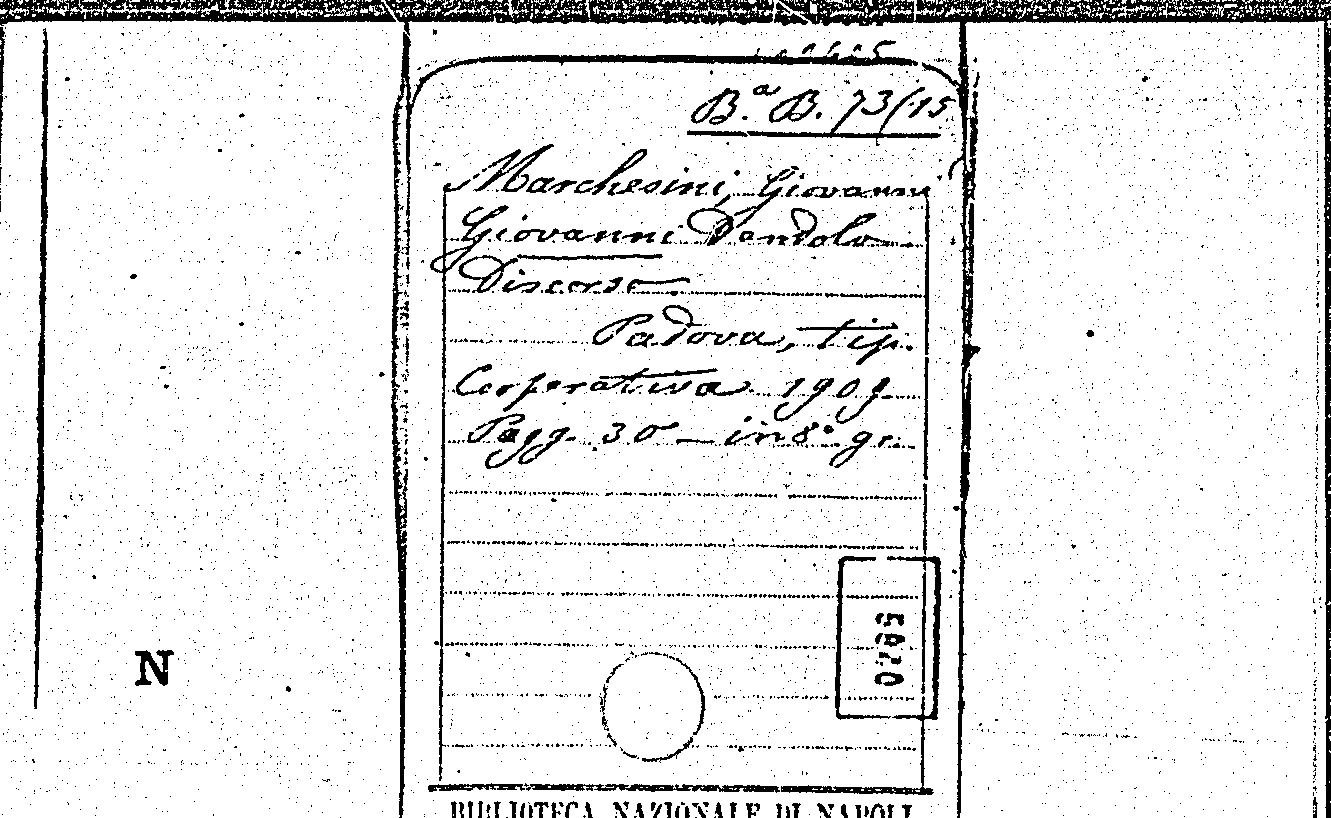 B.ª B. 73/15
Marchesini, Giovanni
Giovanni Dandolo
Discorso
Padova, tip.
Cooperativa 1909
Pagg. 30 – in 8° gr.
N
BIBLIOTECA NAZIONALE DI NAPOLI